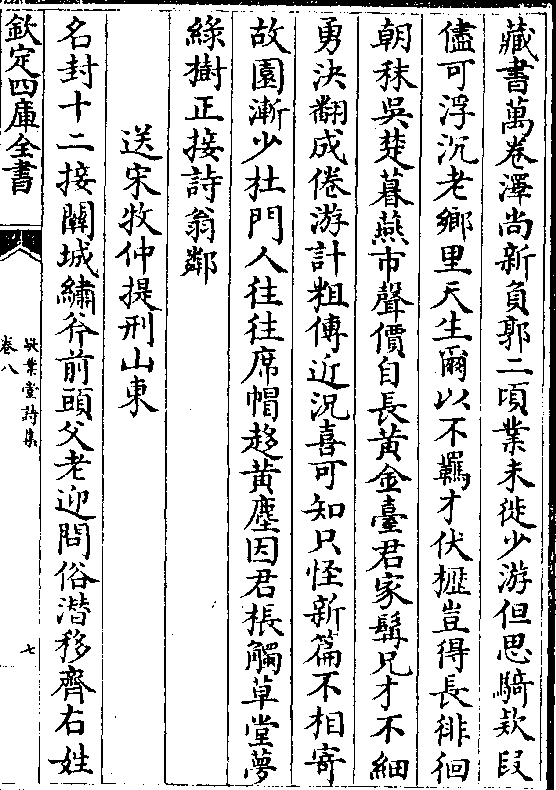 藏書萬卷澤尚新負郭二頃業未徙少游但思騎欵叚
儘可浮沉老鄉里天生爾以不羈才伏櫪豈得長徘徊
朝秣吳楚暮燕市聲價自長黃金臺君家髯兄才不細
勇決翻成倦游計粗傳近況喜可知只怪新篇不相寄
故園漸少杜門人往往席帽趨黃塵因君棖觸草堂夢
綠樹正接詩翁鄰
送宋牧仲提刑山東
名封十二接關城繡斧前頭父老迎問俗潛移齊右姓
欽定四庫全書
敬業堂詩集
卷八
七